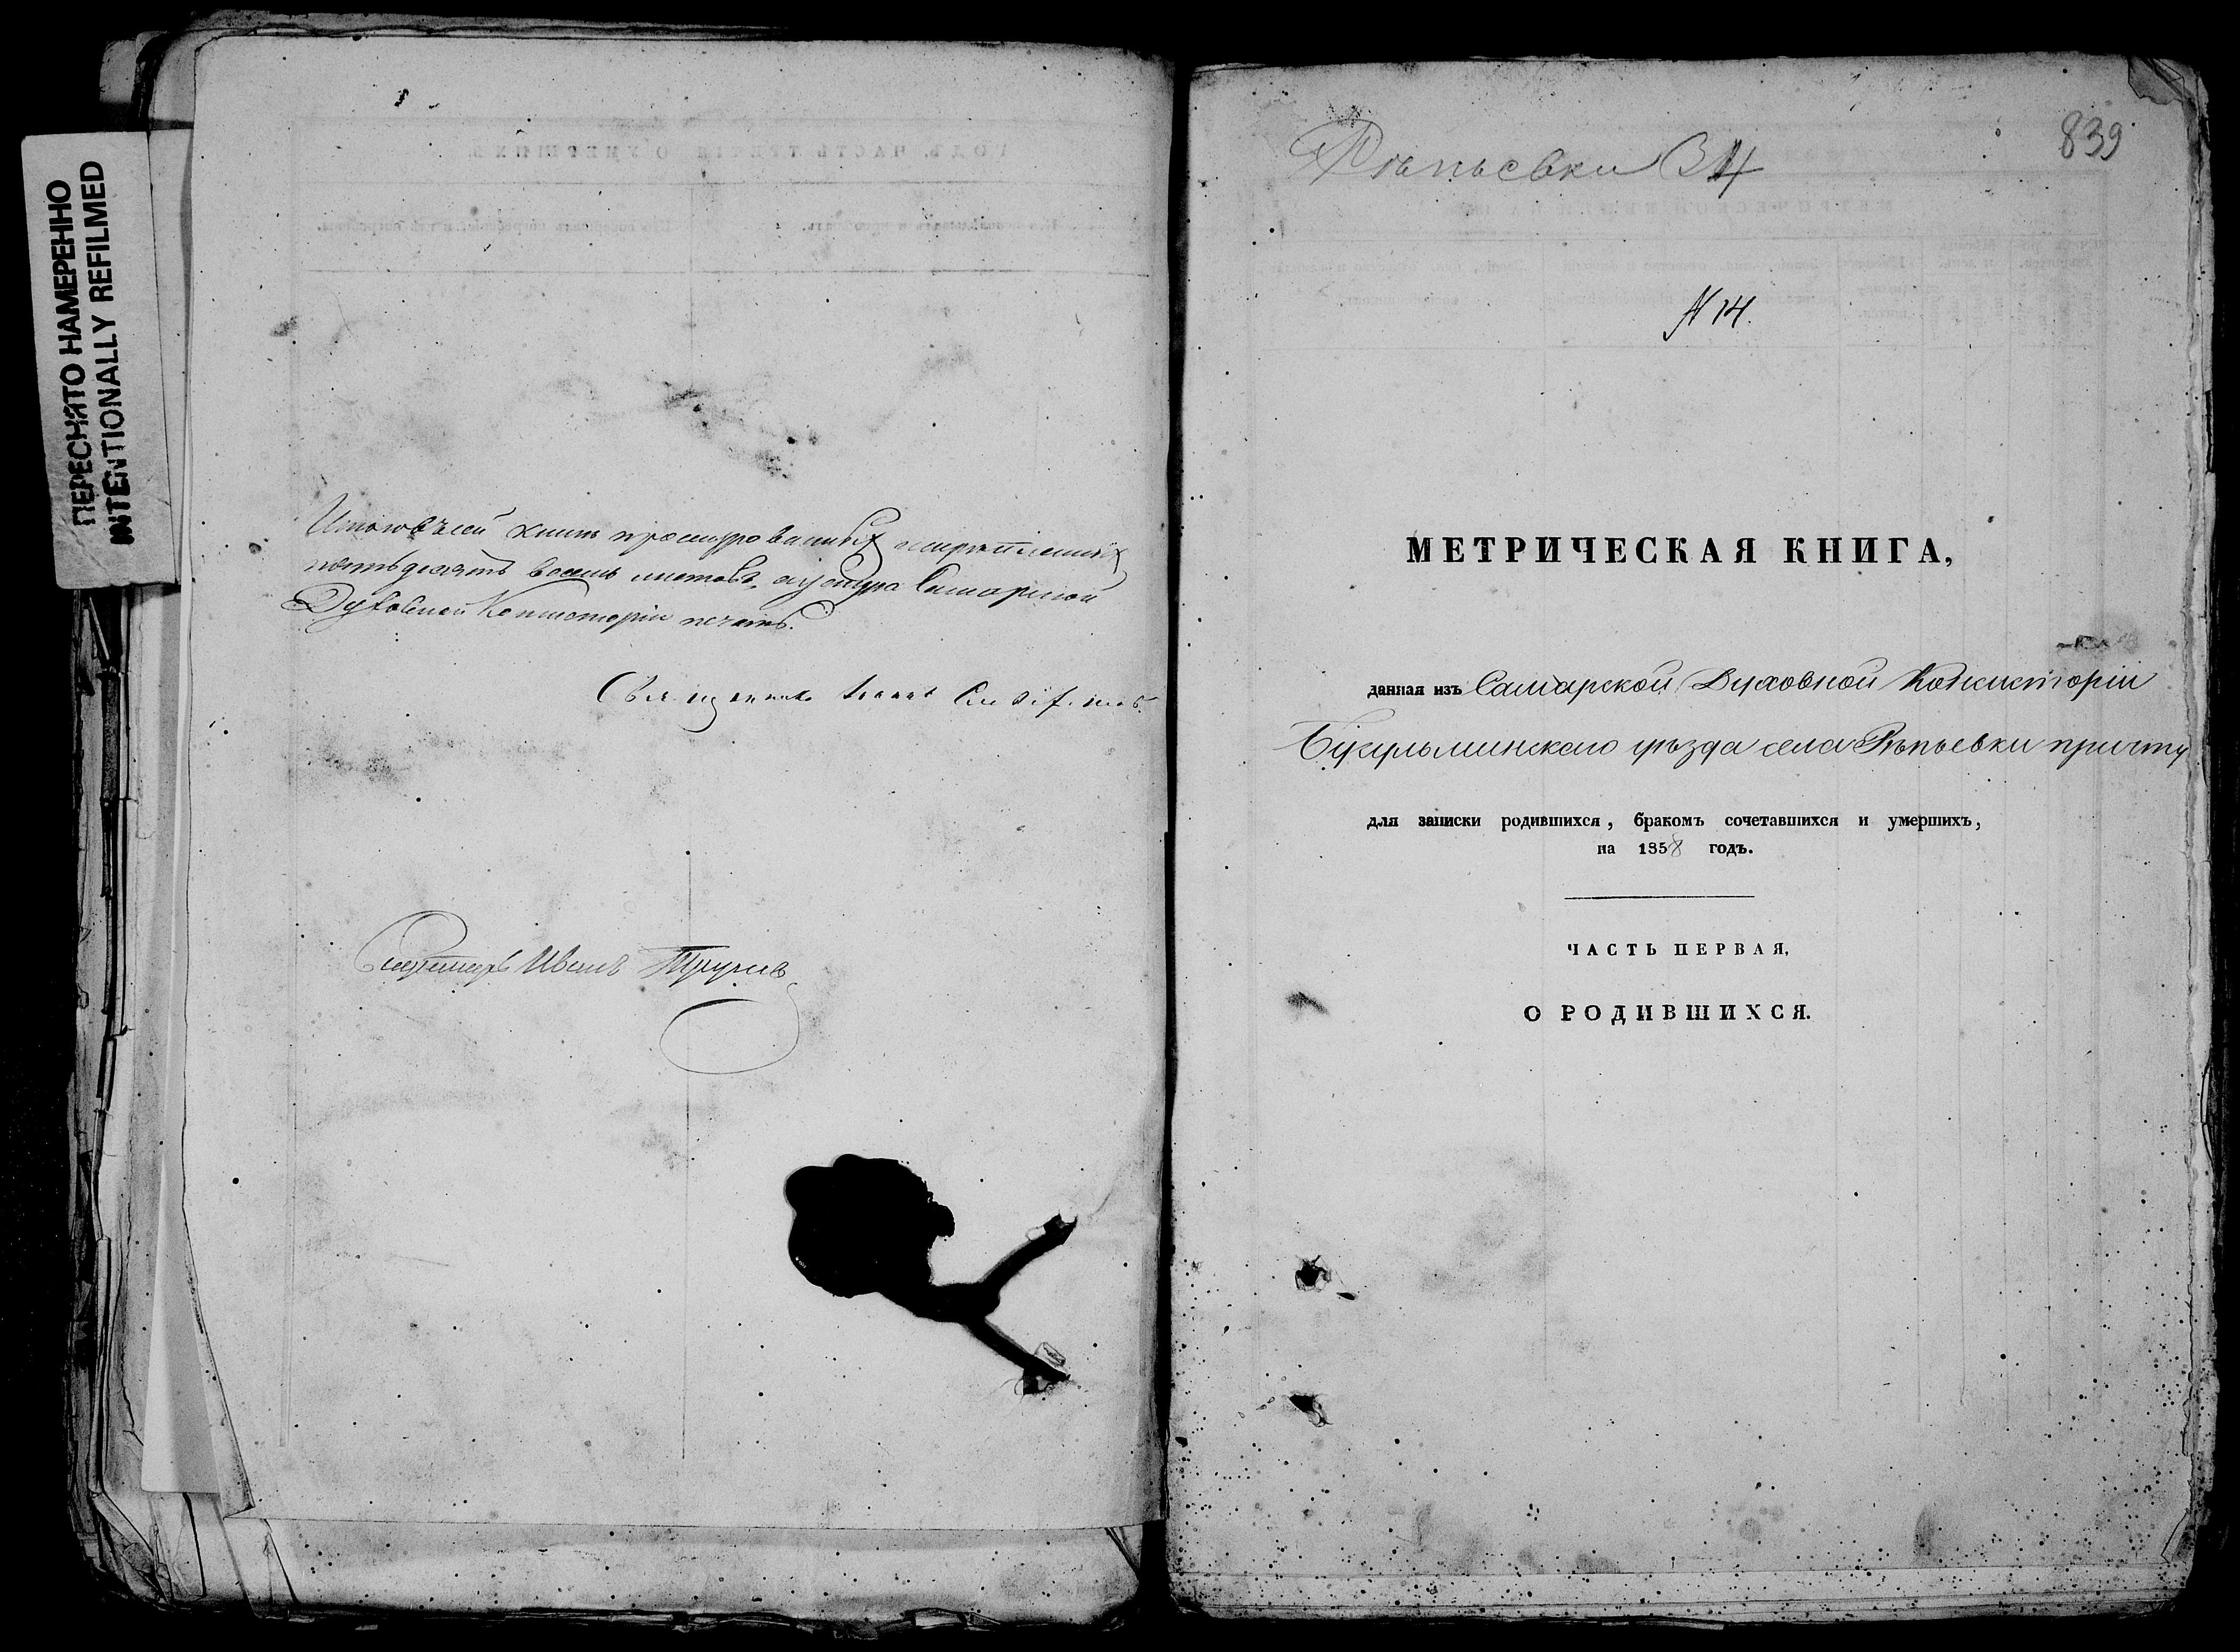 ПЕРЕСНЯТО НАМЕРЕННО
INTENTIONALLY REFILMED
Итого въ сей книгѣ прошнурованныхъ и скрѣпленныхъ
пятьдесятъ восемь листовъ, а у шнура Самарской
Духовной Консисторіи печать.
Священникъ
Секретарь Иванъ
Рѣпьевки
839
N 14.
МЕТРИЧЕСКАЯ КНИГА,
данная изъ Самарской Духовной Консисторіи
Бугульминскаго уѣзда села Рѣпьевки причту
для записки родившихся, бракомъ сочетавшихся и умершихъ,
на 1858 годъ.
ЧАСТЬ ПЕРВАЯ,
О РОДИВШИХСЯ.